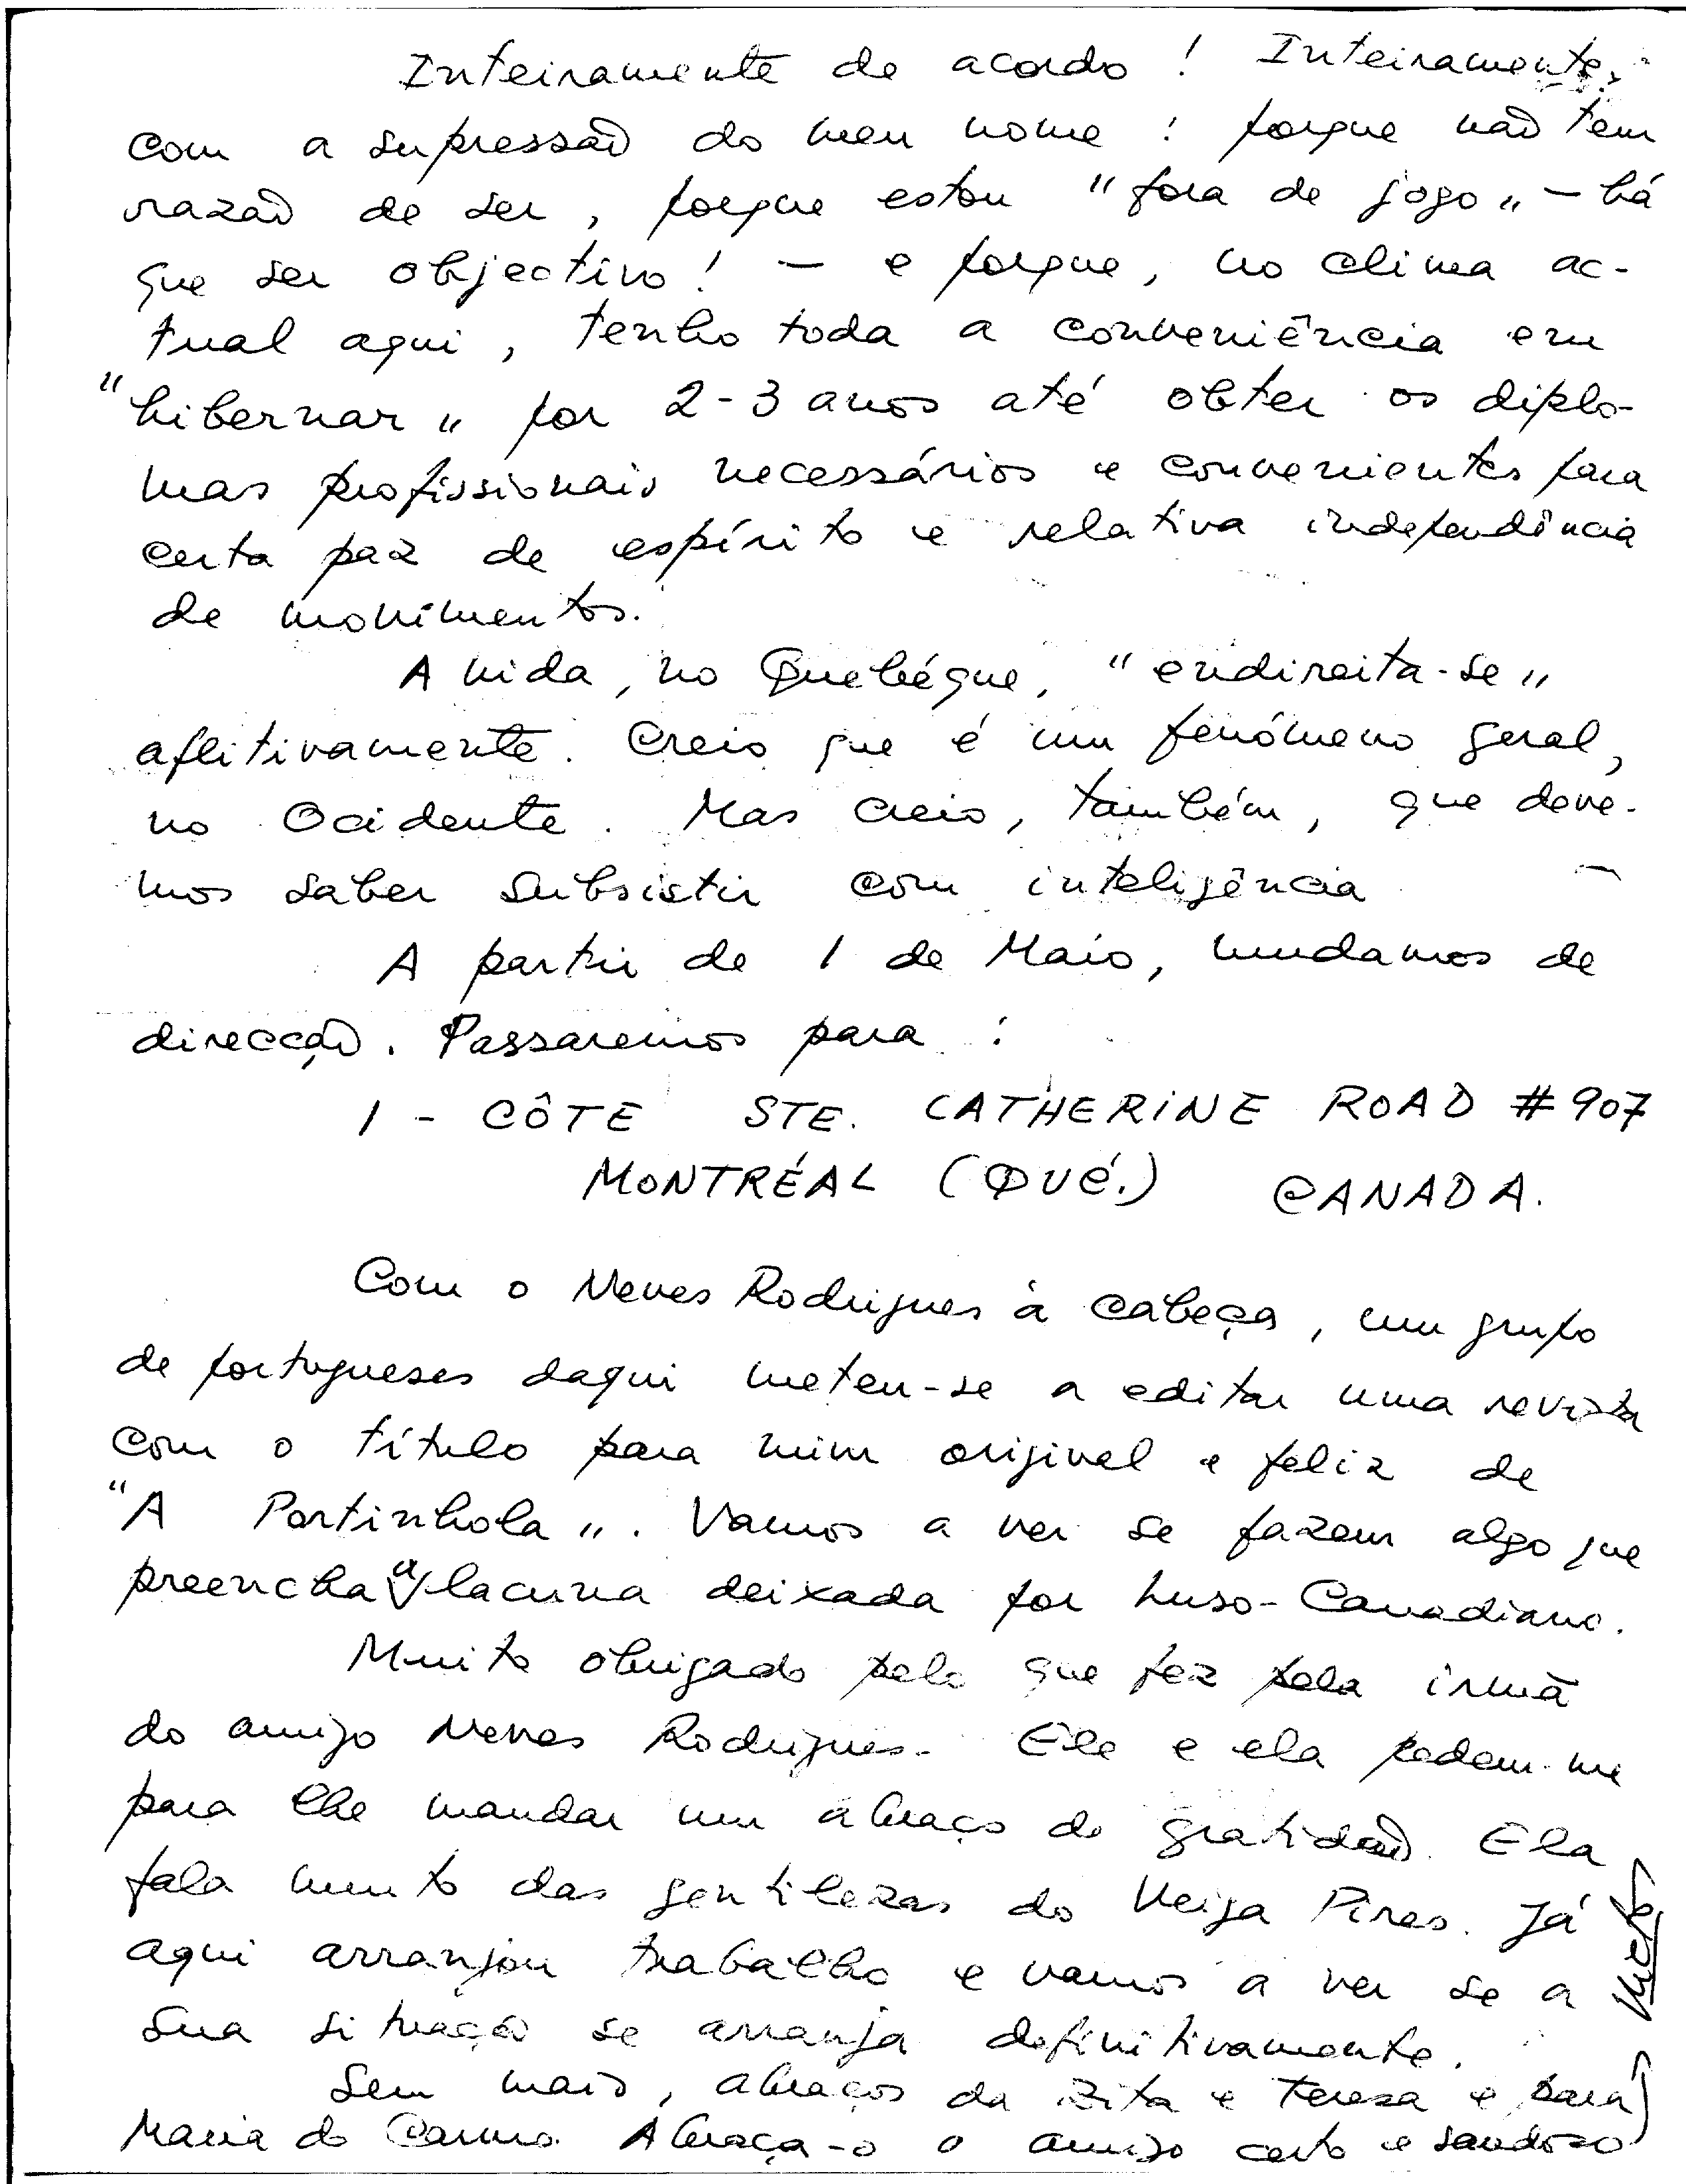 Inteiramente de acordo! Inteiramente,
com a supressão do meu nome: porque não tem
razão de ser, porque estou "fora de jogo" – há
que ser objectivo! – e porque, no clima ac-
tual aqui, tenho toda a conveniência em
"hibernar" por 2-3 anos até obter os diplo-
mas profissionais necessários e convenientes para
certa paz de espírito e relativa independência
de movimentos.
A vida, no Quebéque, "endireita-se"
aflitivamente. Creio que é um fenómeno geral,
no Ocidente. Mas creio, também, que deve-
mos saber subsistir com inteligência.
A partir de 1 de Maio, mudamos de
direcção. Passaremos para:
1 - CÔTE STE. CATHERINE ROAD #907
MONTRÉAL (QUÉ.) CANADA.
Com o Neves Rodrigues à cabeça, um grupo
de portugueses daqui meteu-se a editar uma revista
com o título para mim original e feliz de
"A Portinhola". Vamos a ver se fazem algo que
preencha a lacuna deixada por Luso-Canadiano.
Muito obrigado pelo que fez pela irmã
do amigo Neves Rodrigues. Ele e ela pedem-me
para lhe mandar um abraço de gratidão. Ela
fala muito das gentilezas do Veiga Pires. Já
aqui arranjou trabalho e vamos a ver se a
sua situação se arranja definitivamente.
Sem mais, abraços da Zita e Teresa e para
Maria do Carmo. Abraça-o o amigo certo e saudoso